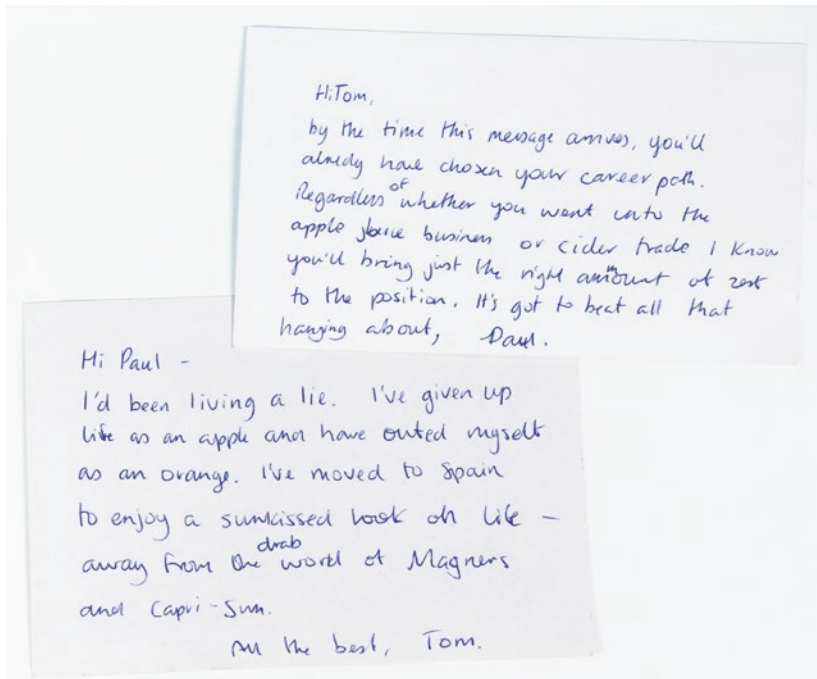 Hi Tom,
by the time this message arrives, you'll
already have chosen your career path.
Regardless of whether you went into the
apple juice business or cider trade I know
you'll bring just the right amount of zest
to the position. It's got to beat all that
hanging about, Paul.
Hi Paul -
I'd been living a lie. I've given up
life as an apple and have outed myself
as an orange. I've moved to Spain
to enjoy a sunkissed look on life -
away from the drab world of Magners
and Capri-Sun.
All the best, Tom.